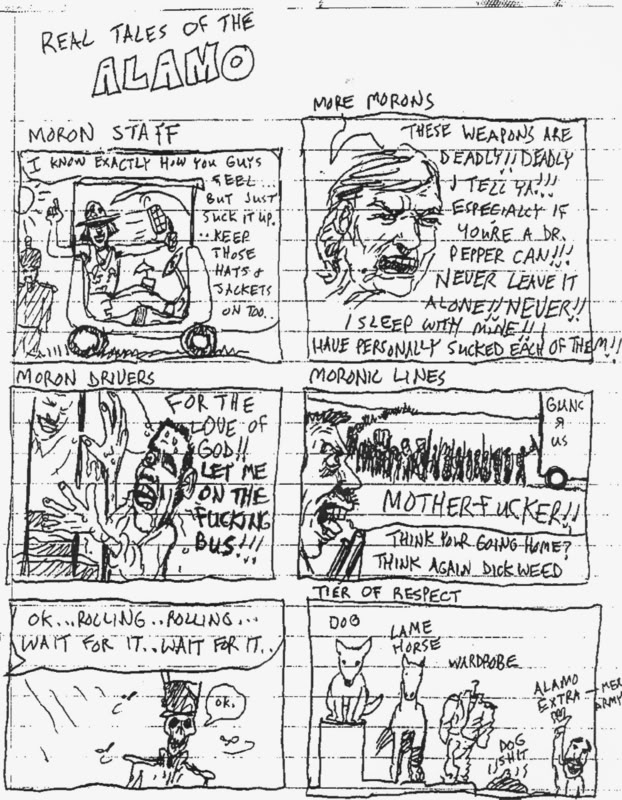 REAL TALES OF THE
ALAMO
MORON STAFF
I KNOW EXACTLY HOW YOU GUYS
FEEL...
BUT JUST
SUCK IT UP.
..KEEP
THOSE
HATS &
JACKETS
ON TOO..
MORE MORONS
THESE WEAPONS ARE
DEADLY!! DEADLY
I TELL YA!!!
ESPECIALLY IF
YOU'RE A DR.
PEPPER CAN!!!
NEVER LEAVE IT
ALONE!! NEVER!!
I SLEEP WITH MINE!! I
HAVE PERSONALLY SUCKED EACH OF THEM!!
MORON DRIVERS
FOR THE
LOVE OF
GOD!!
LET ME
ON THE
FUCKING
BUS!!!
MORONIC LINES
GUNS
R
US
MOTHER-FUCKER!!
THINK YOUR GOING HOME?
THINK AGAIN DICKWEED
OK...ROLLING..ROLLING...
WAIT FOR IT..WAIT FOR IT..
OK.
TIER OF RESPECT
DOG
LAME
HORSE
WARDROBE
DOG
SHIT
ALAMO
EXTRA — MEX
ARMY